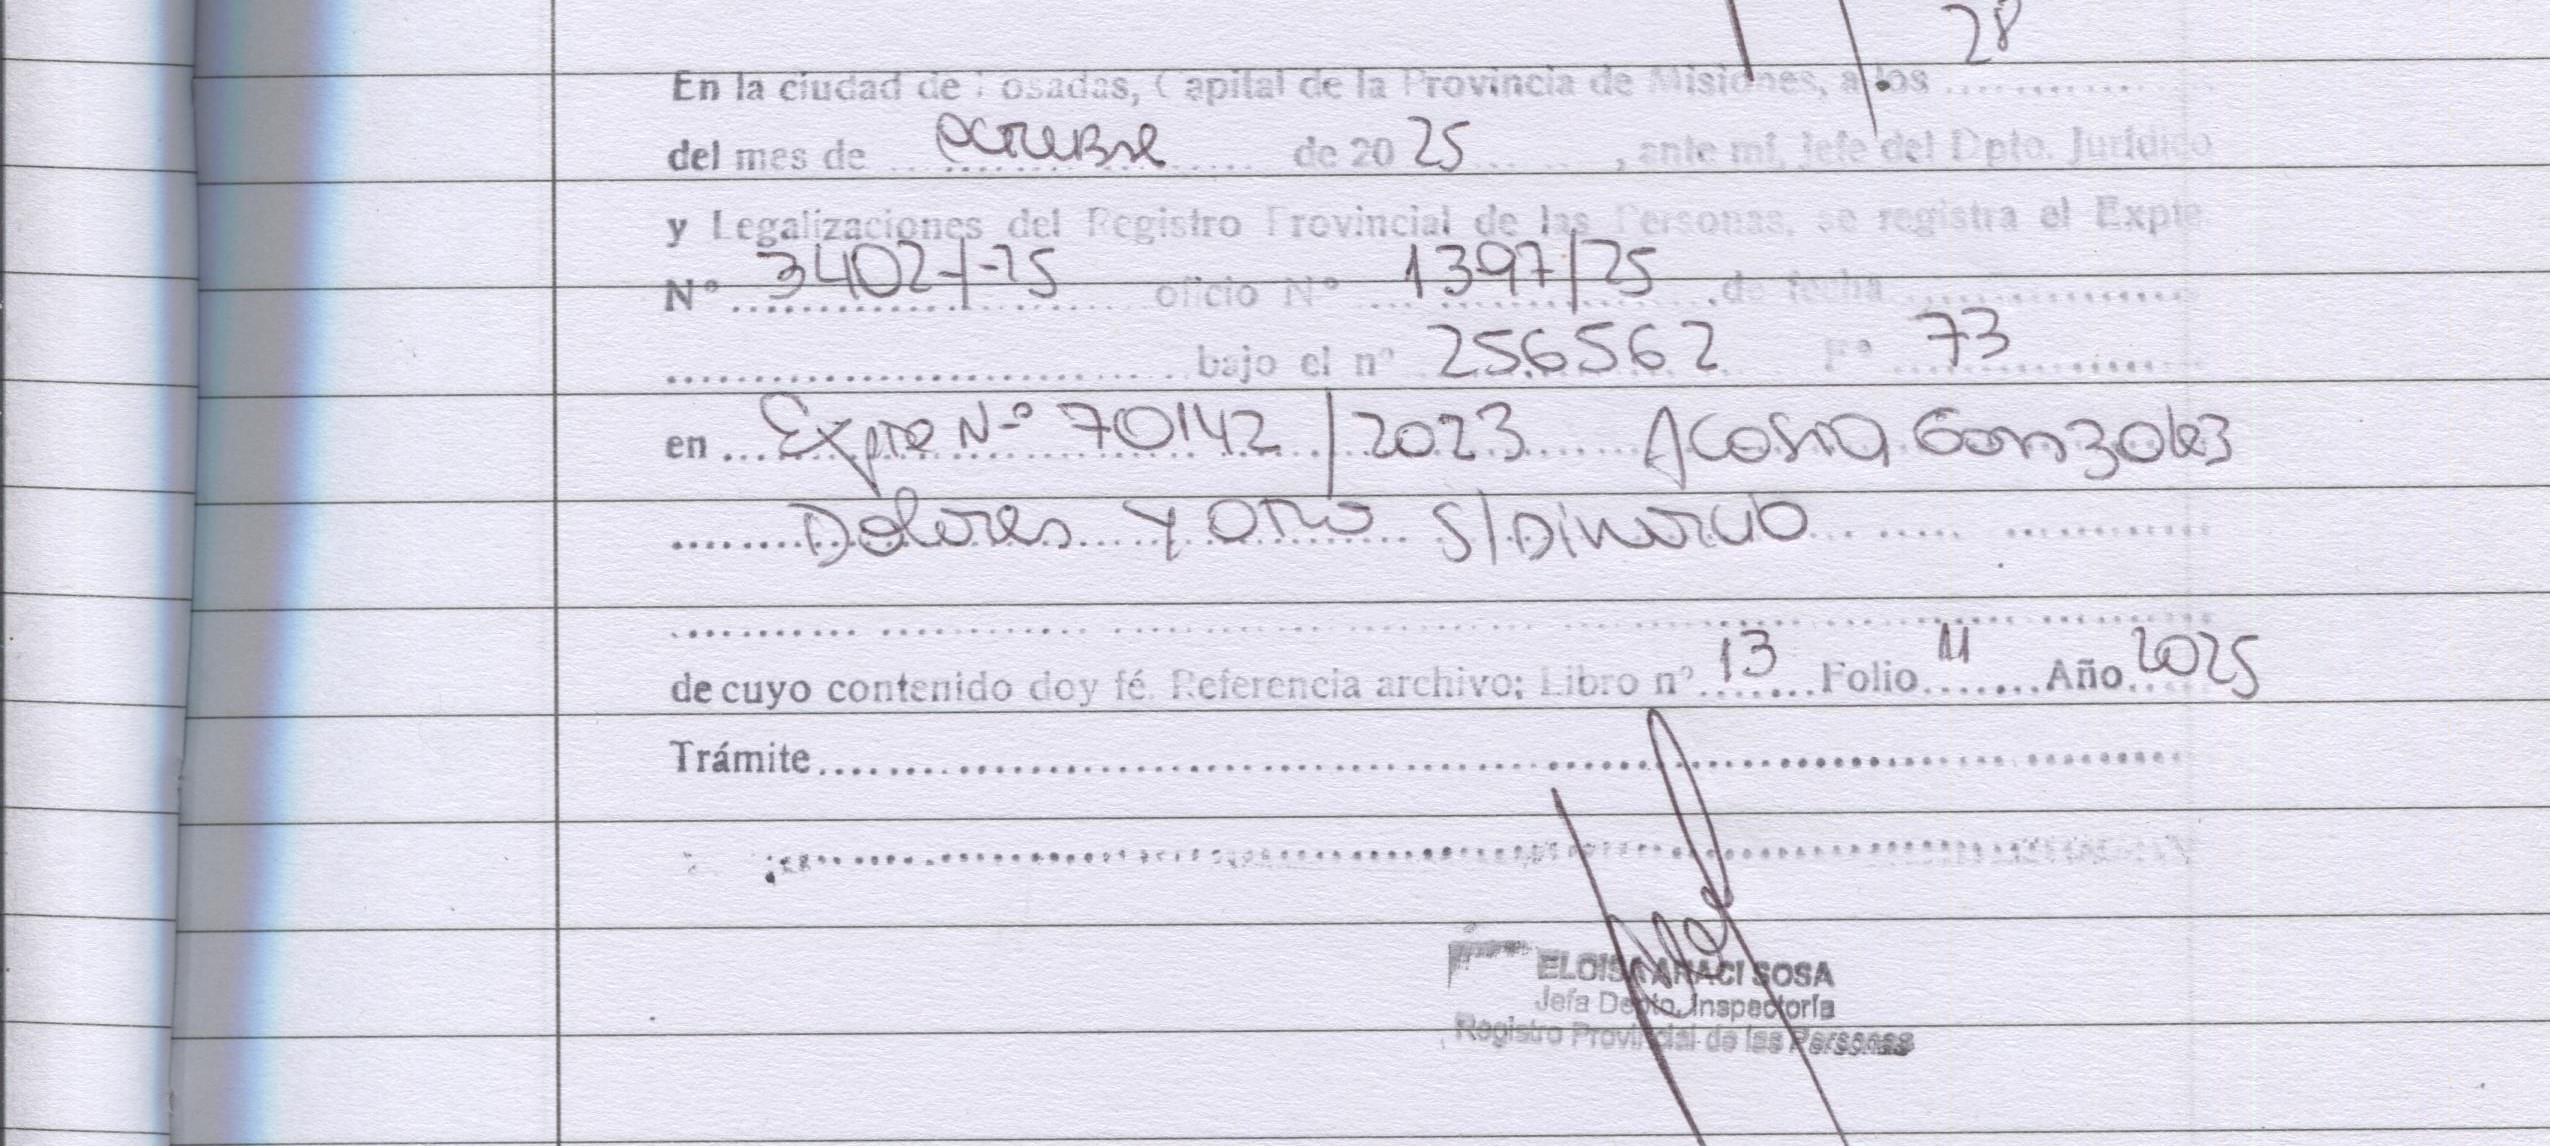 28
En la ciudad de Posadas, Capital de la Provincia de Misiones, a los ............
del mes de octubre de 20 25 , ante mí, jefe del Dpto. Jurídico
y Legalizaciones del Registro Provincial de las Personas, se registra el Expte
N° 3402-I-25 oficio N° 1397/25 de fecha ............
............ bajo el n° 256562 F° 73
en ... Expte N° 70142/2023 Acosta Gonzalez
Dolores Y Otro S/Divorcio
de cuyo contenido doy fé. Referencia archivo; Libro n° 13 Folio 11 Año 2025
Trámite............
ELOISA ARACI SOSA
Jefa Depto. Inspectoría
Registro Provincial de las Personas